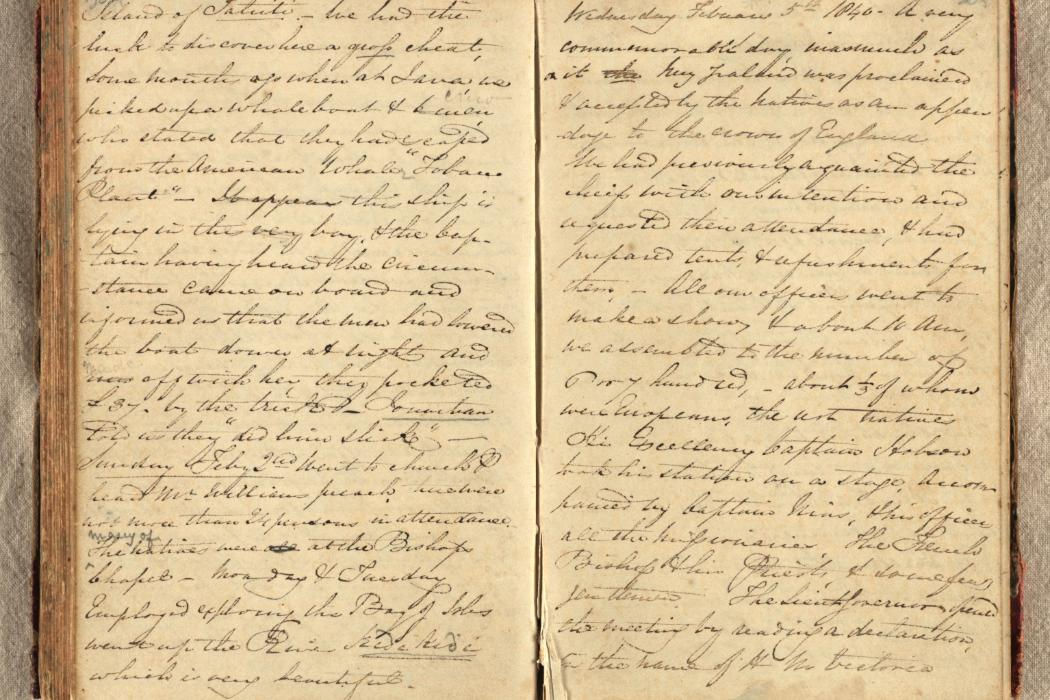 Island of Tahiti. - We had the
luck to discover here a gross cheat,
Some months ago when at Java we
crew
picked up a whale boat & 6 men
who stated that they had escaped
from the American Whaler "Tobacco
Plant" - It appears this ship is
lying in this very bay, & the Cap-
tain having heard the circum-
-stance came on board and
informed us that the men had lowered
the boat down at night and
off with her they pocketed
£37. by the trick - Jonathan
told us they "did him slick" -
Sunday Feby 2nd Went to church &
heard Mr Williams preach there were
not more than 24 persons in attendance.
many of
The natives were at the Bishops
Chapel - Monday & Tuesday
Employed exploring the Bay of Isles
went up the River Kidi Kidi
which is very beautiful. -
Wednesday February 5th 1840 - A very
commemorable day inasmuch as
it the New Zealand was proclaimed
& accepted by the natives as an appen
dage to the crown of England
We had previously acquainted the
cheifs with our intention and
requested their attendance, & had
prepared tents, & refreshments for
them, - All our officers went to
make a show, & about 10 Am,
we assembled to the number of
6 or 7 hundred, - about 1/3 of whom
were Europeans, the rest natives
His Excellency Captain Hobson
took his station on a stage, Accom
panied by Captain Nias, & his officers
all the missionaries, The French
Bishop & his Priests, & some few
gentlemen. The Lieut Governor opened
the meeting by reading a declaration,
in the name of H M Victoria